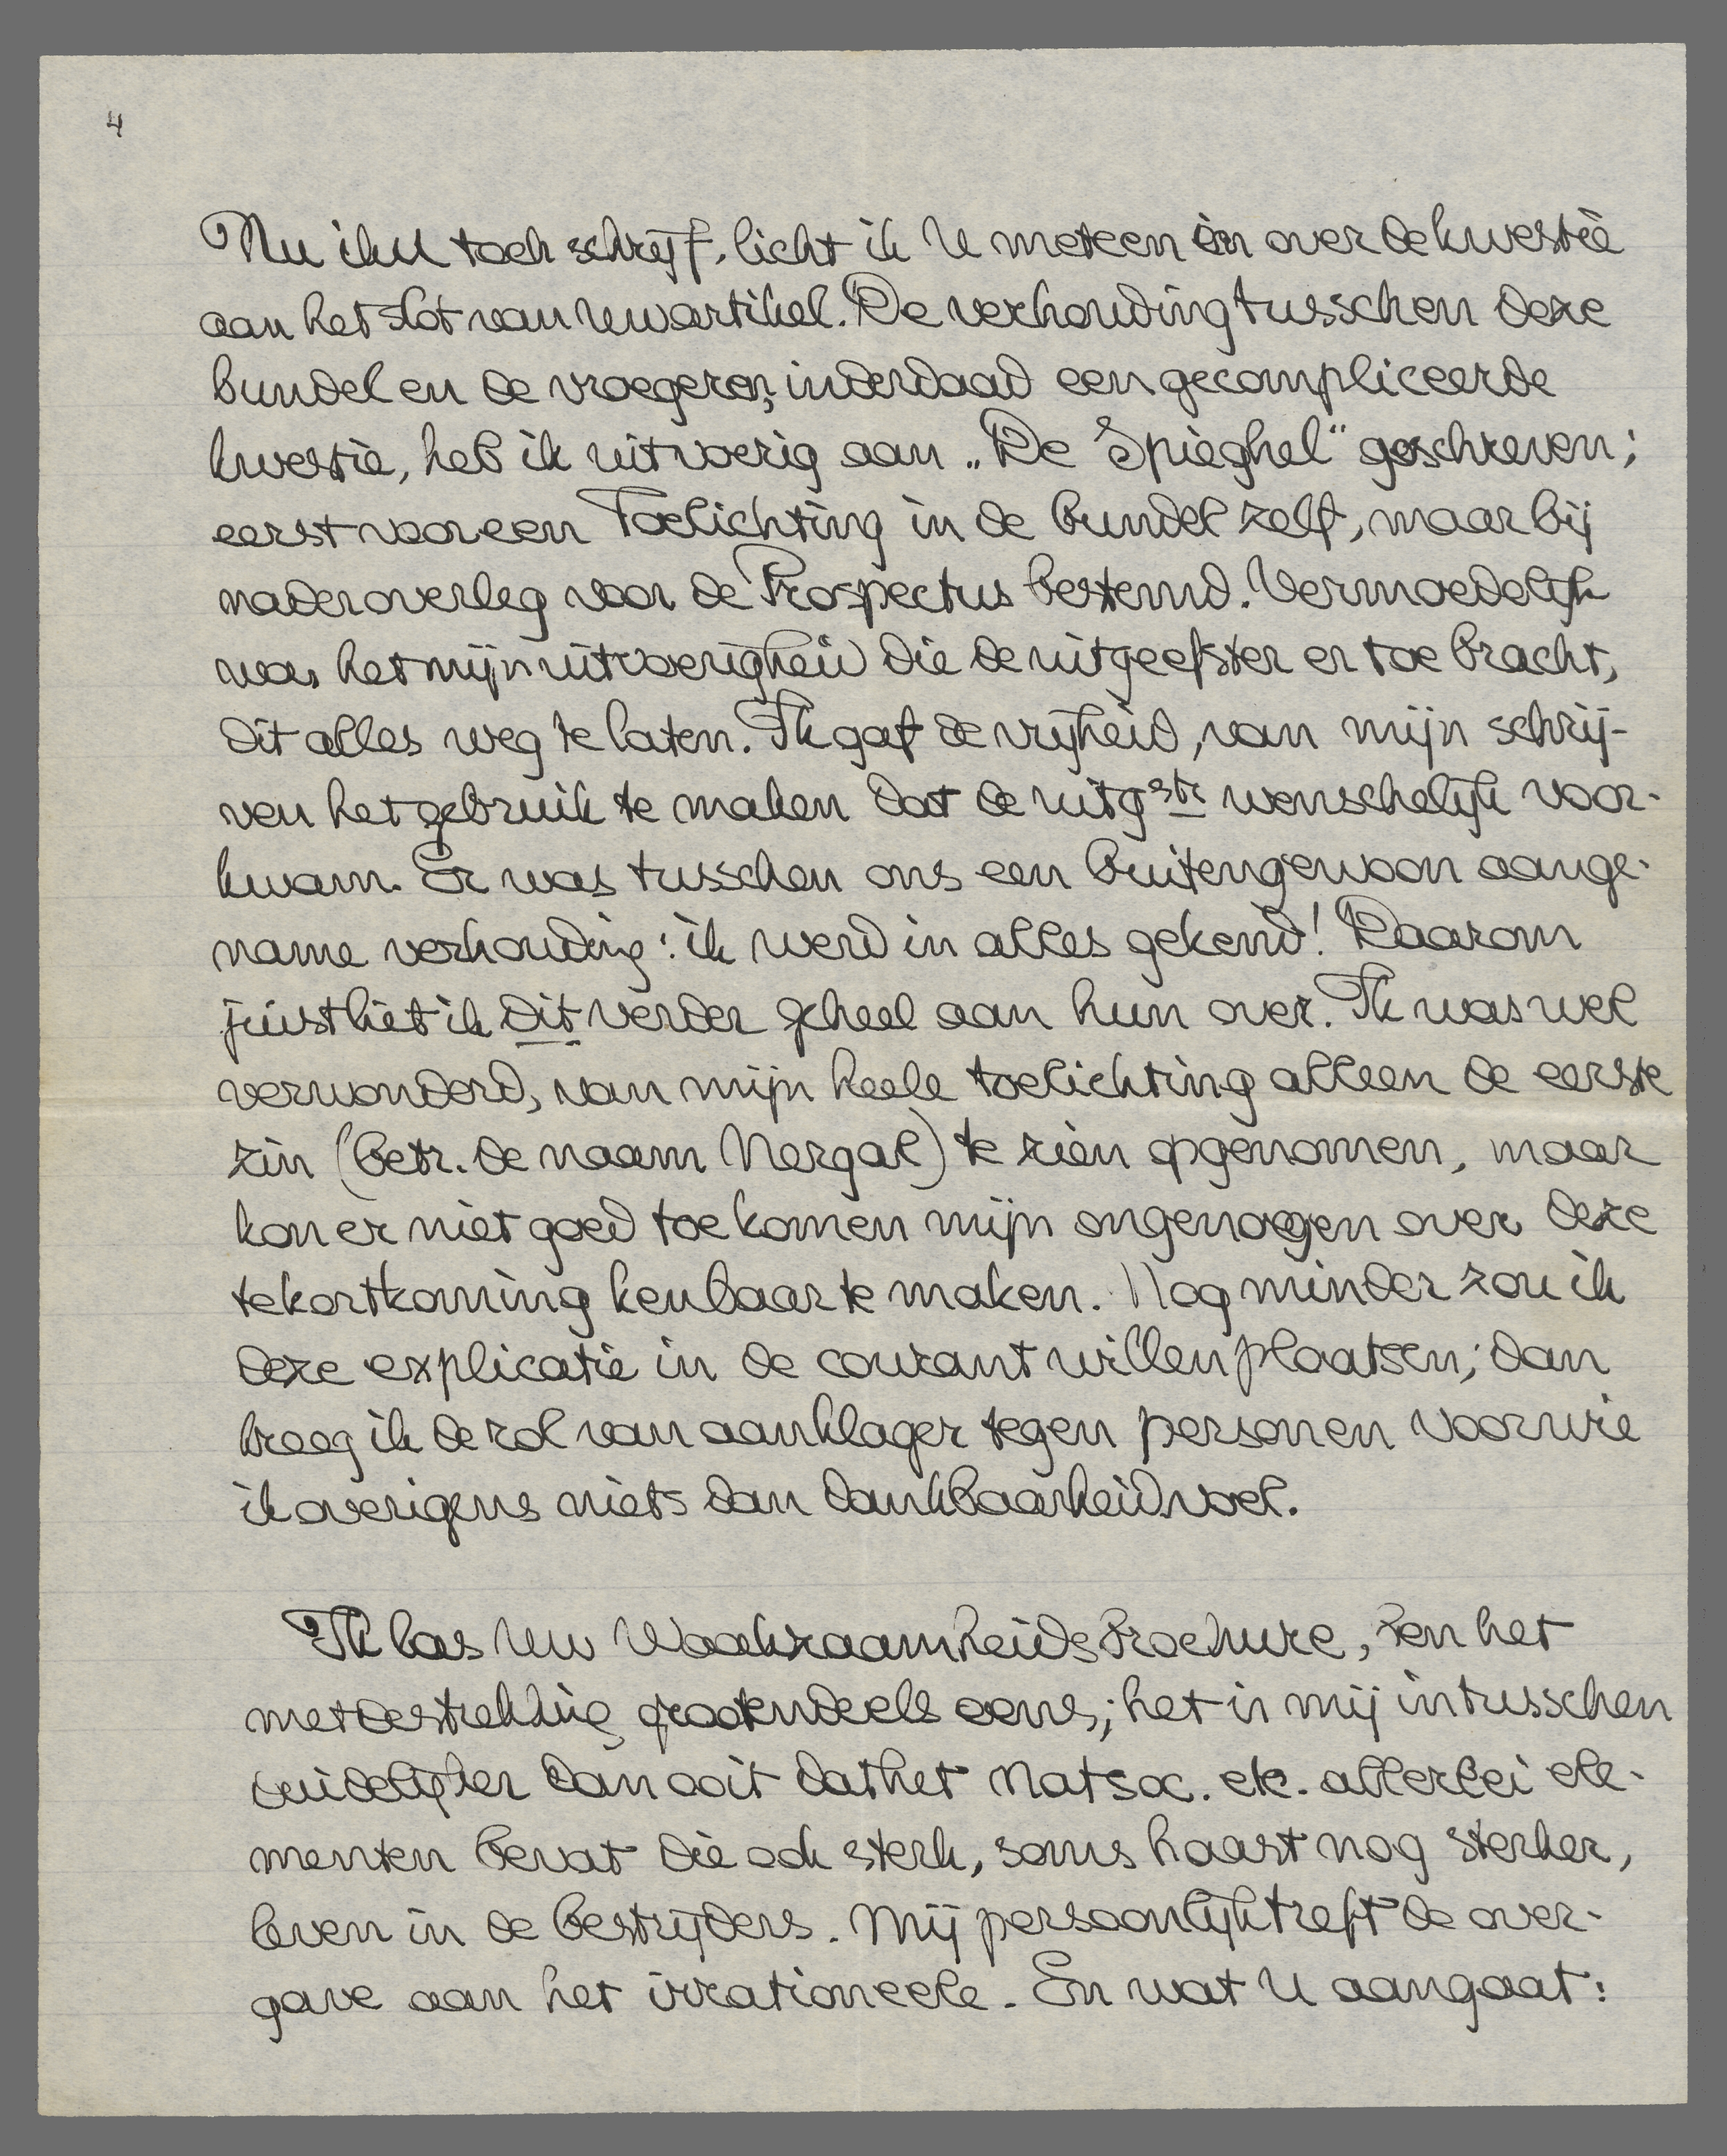 4
Nu ik U toch schrijf, licht ik U meteen in over de kwestie
aan het slot van Uw artikel. De verhouding tusschen deze
bundel en de vroegeren, inderdaad een gecompliceerde
kwestie, heb ik uitvoerig aan „De Spieghel" geschreven;
eerst voor een Toelichting in de bundel zelf, maar bij
nader overleg voor de Prospectus bestemd. Vermoedelijk
was het mijn uitvoerigheid die de uitgeefster er toe bracht,
dit alles weg te laten. Ik gaf de vrijheid, van mijn schrij-
ven het gebruik te maken dat de uitgste wenschelijk voor-
kwam. Er was tusschen ons een buitengewoon aange-
name verhouding: ik werd in alles gekend! Daarom
juist liet ik dit verder geheel aan hun over. Ik was wel
verwonderd, van mijn heele toelichting alleen de eerste
zin (betr. de naam Nergal) te zien opgenomen, maar
kon er niet goed toe komen mijn ongenoegen over deze
tekortkoming kenbaar te maken. Nog minder zou ik
deze explicatie in de courant willen plaatsen; dan
kreeg ik de rol van aanklager tegen personen voor wie
ik overigens niets dan dankbaarheid voel.
Ik las Uw Waakzaamheidsbrochure, ben het
met de strekking grootendeels eens; het is mij intusschen
duidelijker dan ooit dat het nat soc. etc. allerlei ele-
menten bevat die ook sterk, soms haast nog sterker,
leven in de bestrijders. Mij persoonlijk treft de over-
gave aan het irrationeele. En wat U aangaat: